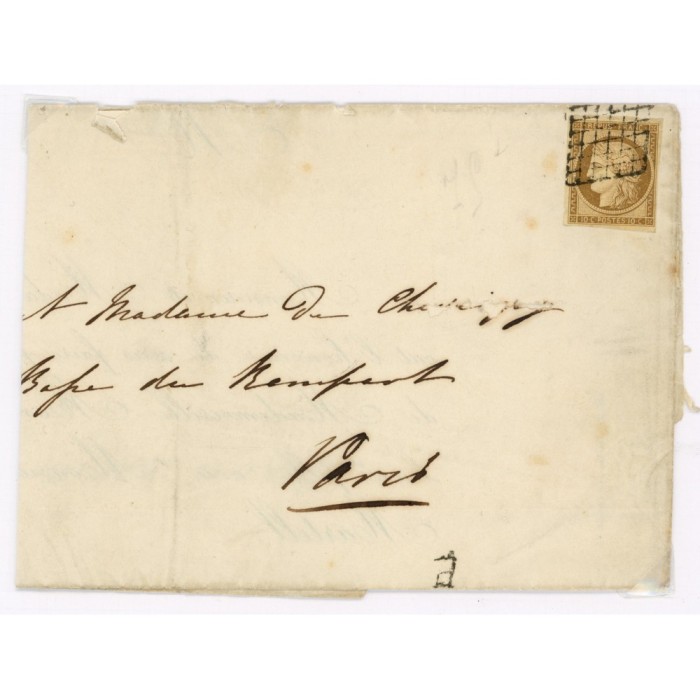 REPUB
10 C POSTES 10 C
et Madame De Chevigny
Basse du Rempart
Paris